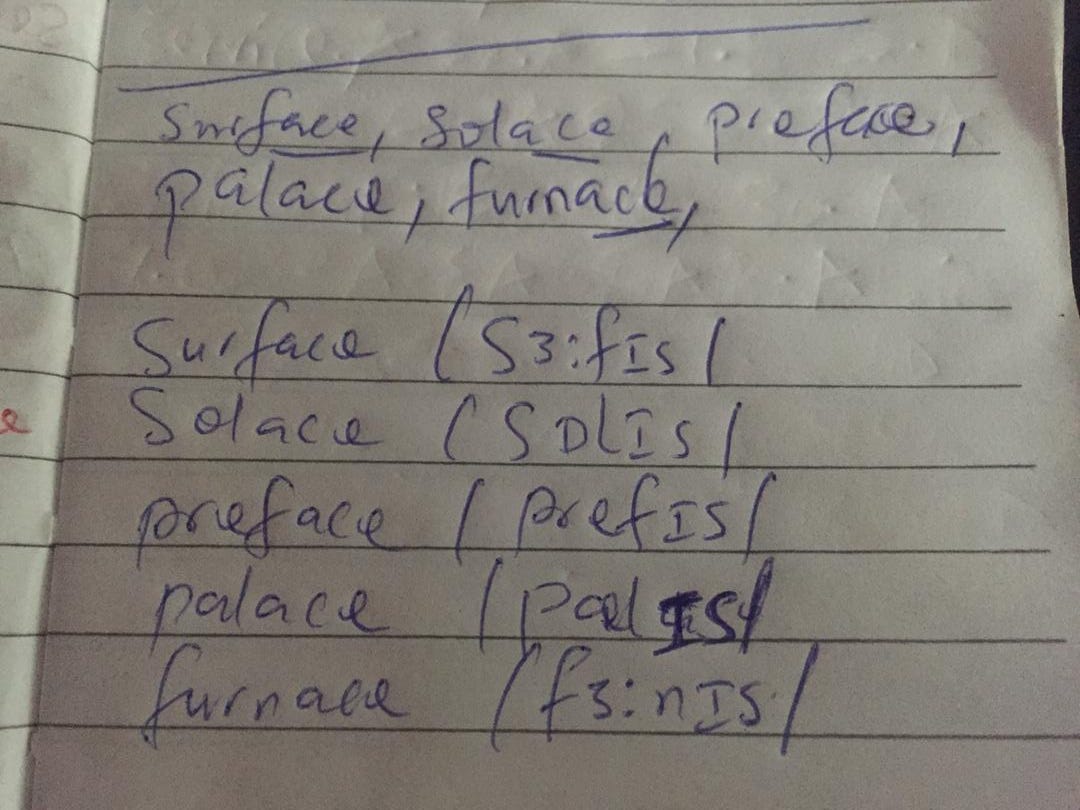 surface, solace, preface,
palace, furnace,
Surface /S3:fIs/
Solace /SDlIs/
preface /prefIS/
palace /pælIS/
furnace /f3:nIs/